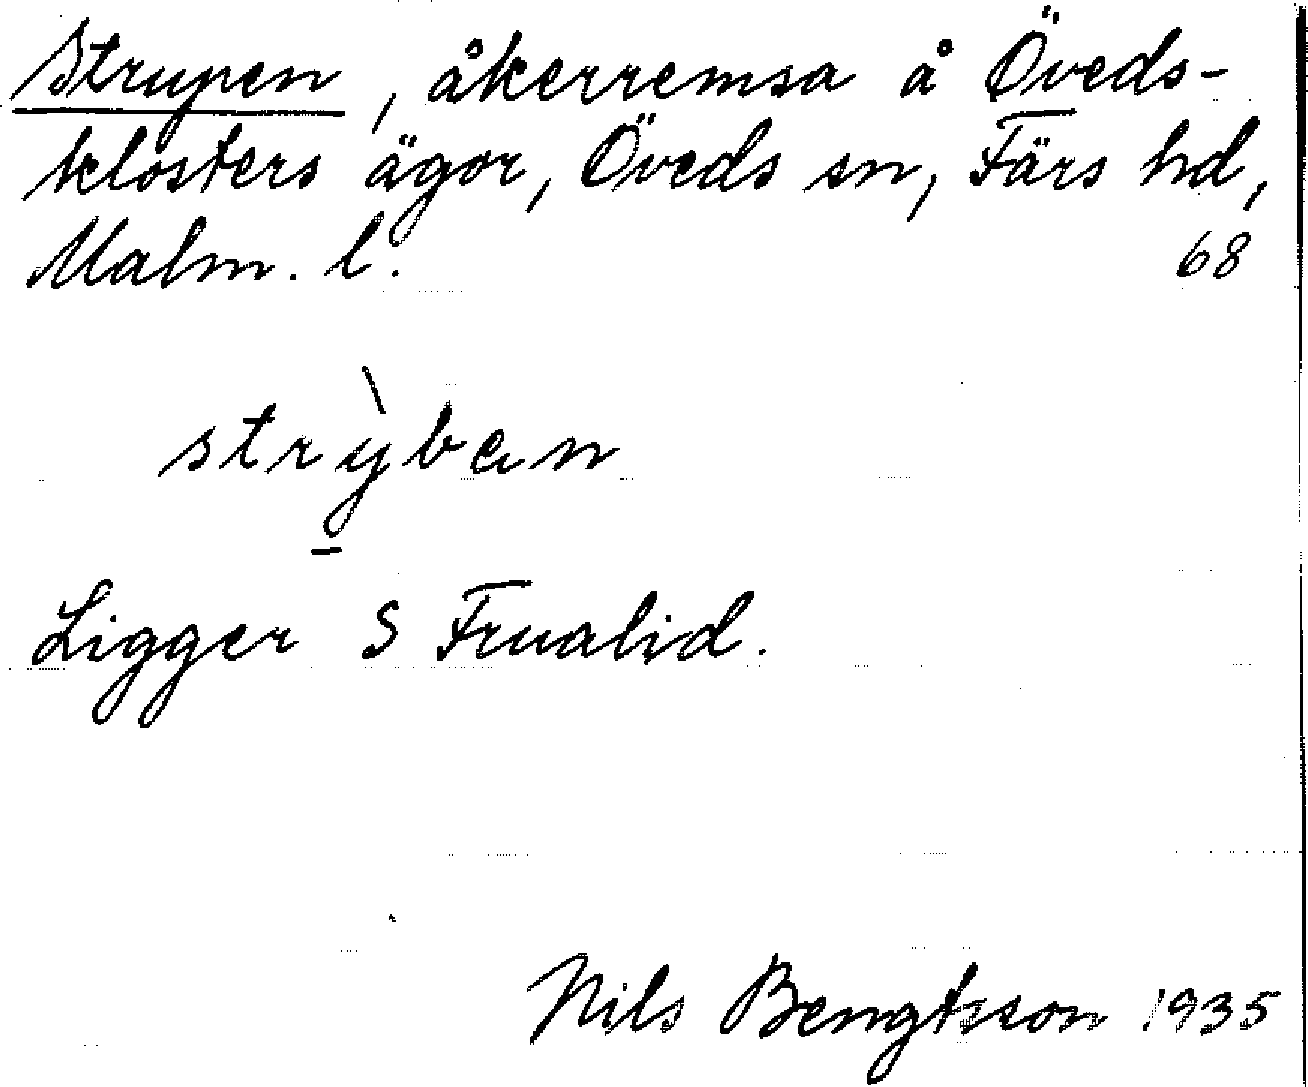 Strupen, åkerremsa å Öveds-
klosters ägor, Öveds sn, Färs hd,
Malm. l. 68
strỳban
Ligger S Frualid.
Nils Bengtsson 1935